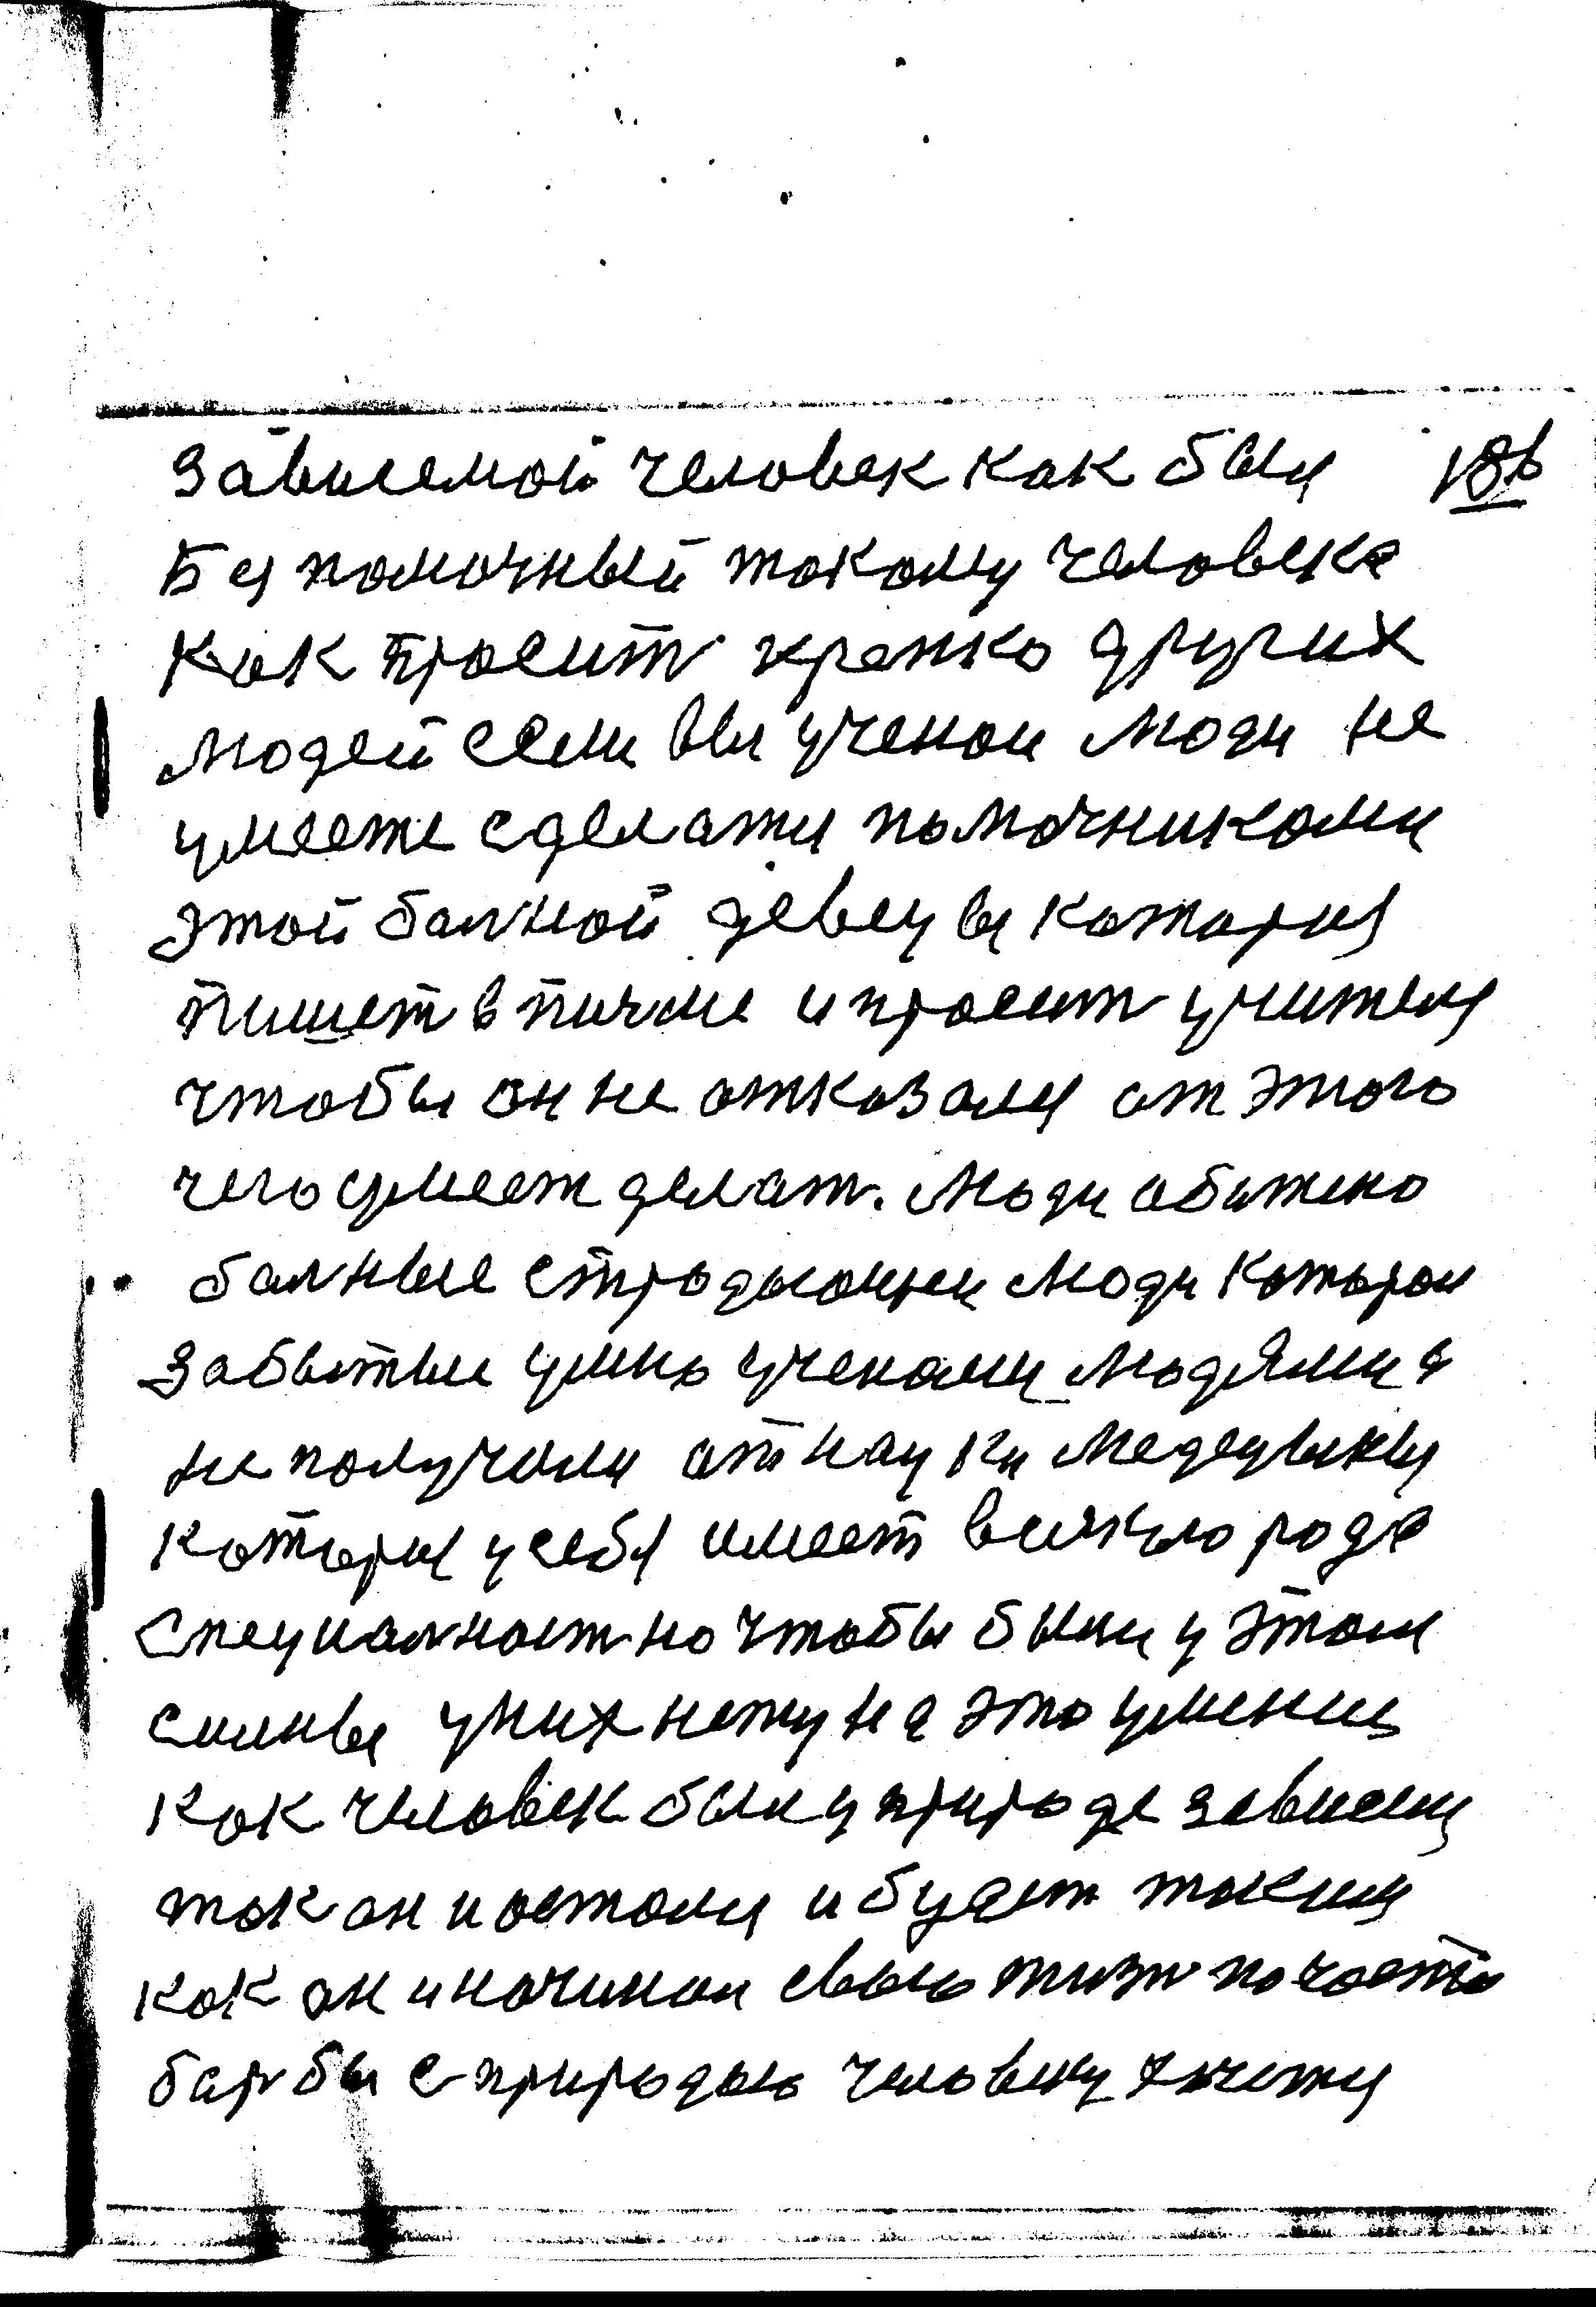 зависемой человек как был 186
Без помочный такому человека
как просит крепко других
людей если вы ученои люди не
умеете сделатся помочниками
этой балной девецы каторыя
пишет в писме и просит учителя
чтобы он не отказался от этого
чего умеет делат. Люди обижено
балные страдающие люди которои
забытыи умно ученами людями а
не получили от науки медецыны
которыя у себя имеет всякого рода
специалност но чтобы были у этом
силны у них нету на это умения
как человек был у природе зависем
так он и остался и будет таким
как он и начинал свою жизн по части
барбы с природою человеку хочется